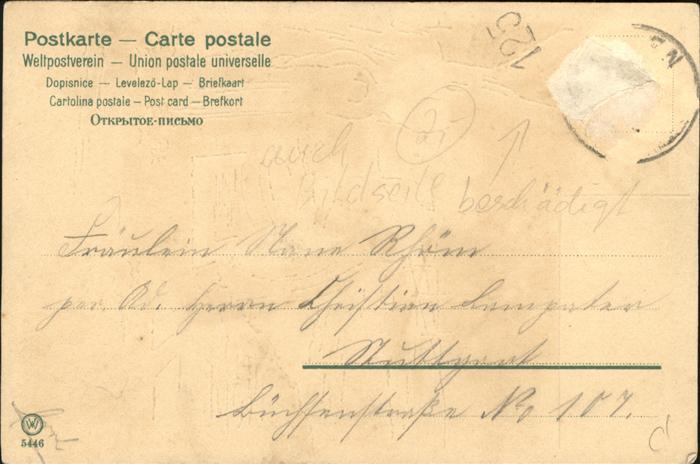 Postkarte — Carte postale
Weltpostverein — Union postale universelle
Dopisnice — Levelező-Lap — Briefkaart
Cartolina postale — Post card — Brefkort
Открытое-письмо
125
EN
auch
Bildseite beschädigt
Fräulein
per Ad. Herrn Christian
Stuttgart
Büchsenstraße No 107.
W
5446